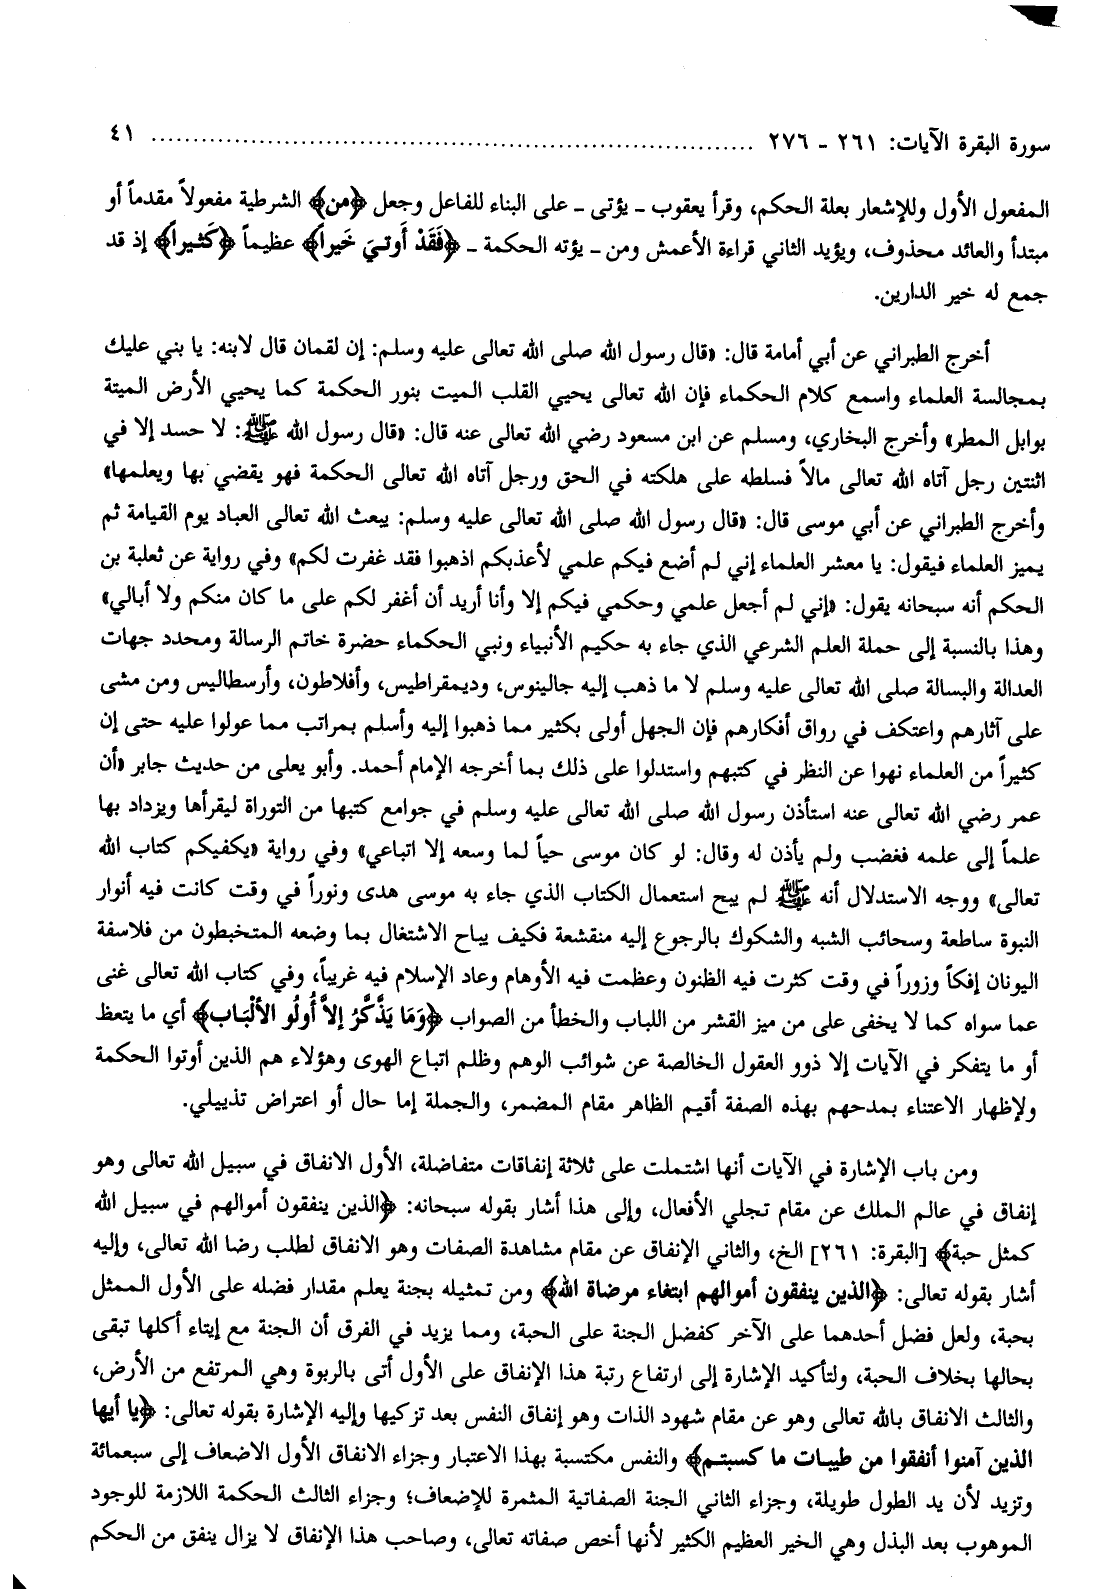 سورة البقرة الآيات: ٢٦١ ـ ٢٧٦ ........................................................................ ٤١
المفعول الأول وللإشعار بعلة الحكم، وقرأ يعقوب ـ يؤتى ـ على البناء للفاعل وجعل ﴿من﴾ الشرطية مفعولاً مقدماً أو
مبتدأ والعائد محذوف، ويؤيد الثاني قراءة الأعمش ومن ـ يؤته الحكمة ـ ﴿فَقَدْ أُوتيَ خَيراً﴾ عظيماً ﴿كَثيراً﴾ إذ قد
جمع له خير الدارين.
أخرج الطبراني عن أبي أمامة قال: «قال رسول الله صلى الله تعالى عليه وسلم: إن لقمان قال لابنه: يا بني عليك
بمجالسة العلماء واسمع كلام الحكماء فإن الله تعالى يحيي القلب الميت بنور الحكمة كما يحيي الأرض الميتة
بوابل المطر» وأخرج البخاري، ومسلم عن ابن مسعود رضي الله تعالى عنه قال: «قال رسول الله ﷺ: لا حسد إلا في
اثنتين رجل آتاه الله تعالى مالاً فسلطه على هلكته في الحق ورجل آتاه الله تعالى الحكمة فهو يقضي بها ويعلمها»
وأخرج الطبراني عن أبي موسى قال: «قال رسول الله صلى الله تعالى عليه وسلم: يبعث الله تعالى العباد يوم القيامة ثم
يميز العلماء فيقول: يا معشر العلماء إني لم أضع فيكم علمي لأعذبكم اذهبوا فقد غفرت لكم» وفي رواية عن ثعلبة بن
الحكم أنه سبحانه يقول: «إني لم أجعل علمي وحكمي فيكم إلا وأنا أريد أن أغفر لكم على ما كان منكم ولا أبالي»
وهذا بالنسبة إلى حملة العلم الشرعي الذي جاء به حكيم الأنبياء ونبي الحكماء حضرة خاتم الرسالة ومحدد جهات
العدالة والبسالة صلى الله تعالى عليه وسلم لا ما ذهب إليه جالينوس، وديمقراطيس، وأفلاطون، وأرسطاليس ومن مشى
على آثارهم واعتكف في رواق أفكارهم فإن الجهل أولى بكثير مما ذهبوا إليه وأسلم بمراتب مما عولوا عليه حتى إن
كثيراً من العلماء نهوا عن النظر في كتبهم واستدلوا على ذلك بما أخرجه الإمام أحمد. وأبو يعلى من حديث جابر «أن
عمر رضي الله تعالى عنه استأذن رسول الله صلى الله تعالى عليه وسلم في جوامع كتبها من التوراة ليقرأها ويزداد بها
علماً إلى علمه فغضب ولم يأذن له وقال: لو كان موسى حياً لما وسعه إلا اتباعي» وفي رواية «يكفيكم كتاب الله
تعالى» ووجه الاستدلال أنه ﷺ لم يبح استعمال الكتاب الذي جاء به موسى هدى ونوراً في وقت كانت فيه أنوار
النبوة ساطعة وسحائب الشبه والشكوك بالرجوع إليه منقشعة فكيف يباح الاشتغال بما وضعه المتخبطون من فلاسفة
اليونان إفكاً وزوراً في وقت كثرت فيه الظنون وعظمت فيه الأوهام وعاد الإسلام فيه غريباً، وفي كتاب الله تعالى غنى
عما سواه كما لا يخفى على من ميز القشر من اللباب والخطأ من الصواب ﴿وَمَا يَذَّكَّرُ إلاَّ أُولُو الألْبَاب﴾ أي ما يتعظ
أو ما يتفكر في الآيات إلا ذوو العقول الخالصة عن شوائب الوهم وظلم اتباع الهوى وهؤلاء هم الذين أوتوا الحكمة
ولإظهار الاعتناء بمدحهم بهذه الصفة أقيم الظاهر مقام المضمر، والجملة إما حال أو اعتراض تذييلي.
ومن باب الإشارة في الآيات أنها اشتملت على ثلاثة إنفاقات متفاضلة، الأول الانفاق في سبيل الله تعالى وهو
إنفاق في عالم الملك عن مقام تجلي الأفعال، وإلى هذا أشار بقوله سبحانه: ﴿الذين ينفقون أموالهم في سبيل الله
كمثل حبة﴾ [البقرة: ٢٦١] الخ، والثاني الإنفاق عن مقام مشاهدة الصفات وهو الانفاق لطلب رضا الله تعالى، وإليه
أشار بقوله تعالى: ﴿الذين ينفقون أموالهم ابتغاء مرضاة الله﴾ ومن تمثيله بجنة يعلم مقدار فضله على الأول الممثل
بحبة، ولعل فضل أحدهما على الآخر كفضل الجنة على الحبة، ومما يزيد في الفرق أن الجنة مع إيتاء أكلها تبقى
بحالها بخلاف الحبة، ولتأكيد الإشارة إلى ارتفاع رتبة هذا الإنفاق على الأول أتى بالربوة وهي المرتفع من الأرض،
والثالث الانفاق بالله تعالى وهو عن مقام شهود الذات وهو إنفاق النفس بعد تزكيها وإليه الإشارة بقوله تعالى: ﴿يا أيها
الذين آمنوا أنفقوا من طيبات ما كسبتم﴾ والنفس مكتسبة بهذا الاعتبار وجزاء الانفاق الأول الاضعاف إلى سبعمائة
وتزيد لأن يد الطول طويلة، وجزاء الثاني الجنة الصفاتية المثمرة للإضعاف؛ وجزاء الثالث الحكمة اللازمة للوجود
الموهوب بعد البذل وهي الخير العظيم الكثير لأنها أخص صفاته تعالى، وصاحب هذا الإنفاق لا يزال ينفق من الحكم